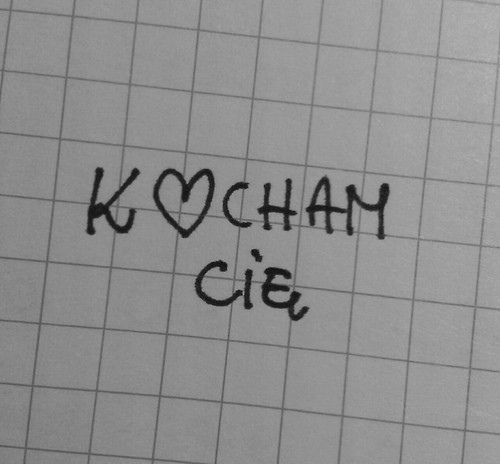 K♡CHAM
CiĘ